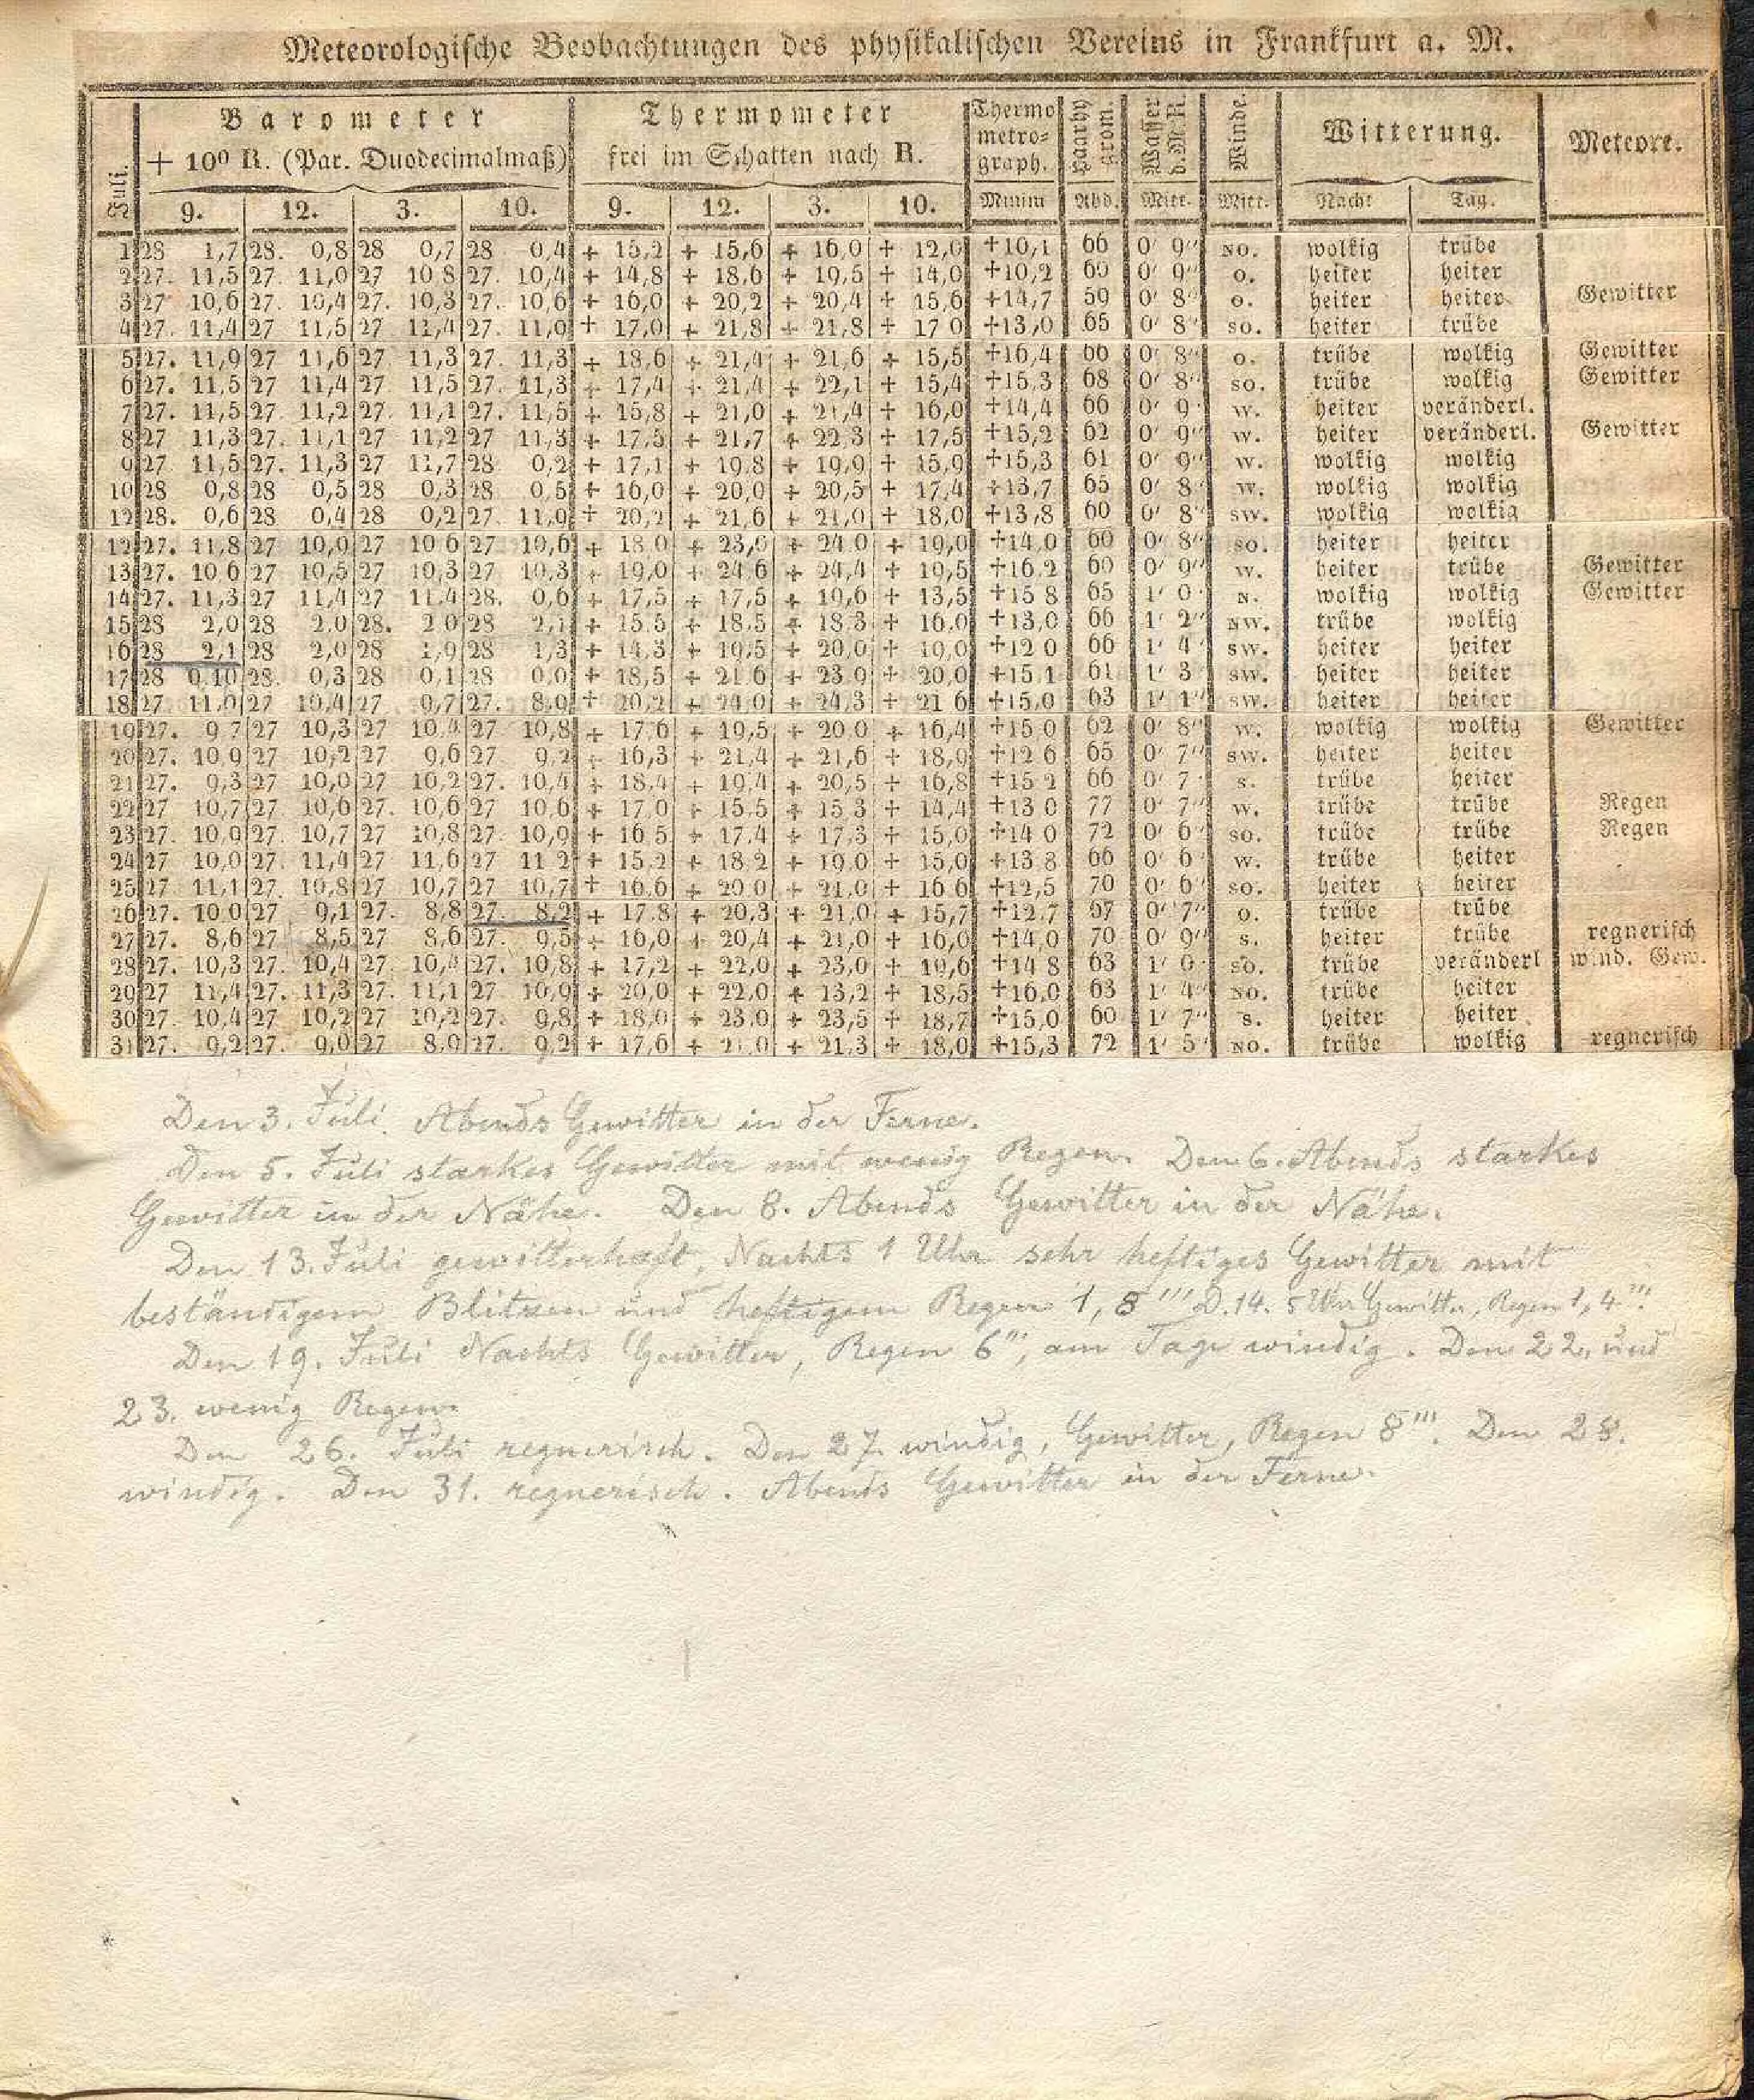 Meteorologische Beobachtungen des physikalischen Vereins in Frankfurt a. M.
Juli. Barometer + 10⁰ R. (Par. Duodecimalmaß) Thermometer frei im Schatten nach R. Thermometrograph. Haarhygrom. Wasser d. M. R. Winde. Witterung. Meteore.
9. 12. 3. 10. 9. 12. 3. 10. Minim Abd. Mitt. Mitt. Nacht Tag.
1 28 1,7 28. 0,8 28 0,7 28 0,4 + 15,2 + 15,6 + 16,0 + 12,0 +10,1 66 0' 9" NO. wolkig trübe
2 27. 11,5 27. 11,0 27 10 8 27. 10,4 + 14,8 + 18,6 + 19,5 + 14,0 +10,2 60 0' 9" O. heiter heiter
3 27 10,6 27. 10,4 27. 10,3 27. 10,6 + 16,0 + 20,2 + 20,4 + 15,6 +14,7 59 0' 8" O. heiter heiter Gewitter
4 27. 11,4 27 11,5 27 11,4 27. 11,0 + 17,0 + 21,8 + 21,8 + 17 0 +13,0 65 0' 8" SO. heiter trübe
5 27. 11,9 27 11,6 27 11,3 27. 11,3 + 18,6 + 21,4 + 21,6 + 15,5 +16,4 66 0' 8" O. trübe wolkig Gewitter
6 27. 11,5 27 11,4 27 11,5 27. 11,3 + 17,4 + 21,4 + 22,1 + 15,4 +15,3 68 0' 8" SO. trübe wolkig Gewitter
7 27. 11,5 27. 11,2 27. 11,1 27. 11,5 + 15,8 + 21,0 + 21,4 + 16,0 +14,4 66 0' 9" W. heiter veränderl.
8 27 11,3 27. 11,1 27 11,2 27 11,3 + 17,5 + 21,7 + 22 3 + 17,5 +15,2 62 0' 9" W. heiter veränderl. Gewitter
9 27 11,5 27. 11,3 27 11,7 28 0,2 + 17,1 + 19,8 + 19,9 + 15,9 +15,3 61 0' 9" W. wolkig wolkig
10 28 0,8 28 0,5 28 0,3 28 0,5 + 16,0 + 20,0 + 20,5 + 17,4 +13,7 65 0' 8" W. wolkig wolkig
12 28. 0,6 28 0,4 28 0,2 27. 11,9 + 20,2 + 21,6 + 21,0 + 18,0 +13,8 60 0' 8" SW. wolkig wolkig
12 27. 11,8 27 10,9 27 10 6 27 10,6 + 18 0 + 23,0 + 24 0 + 19,0 +14,0 60 0' 8" SO. heiter heiter
13 27. 10 6 27 10,5 27 10,3 27 10,3 + 19,0 + 24 6 + 24,4 + 19,5 +16,2 60 0' 9" W. heiter trübe Gewitter
14 27. 11,3 27 11,4 27 11,4 28. 0,6 + 17,5 + 17,5 + 19,6 + 13,5 +15 8 65 1' 0" N. wolkig wolkig Gewitter
15 28 2,0 28 2,0 28. 2 0 28 2,1 + 15 5 + 18,5 + 18 3 + 16,0 +13,0 66 1' 2" NW. trübe wolkig
16 28 2,1 28 2,0 28 1,9 28 1,3 + 14,3 + 19,5 + 20,0 + 19,0 +12 0 66 1' 4" SW. heiter heiter
17 28 0.10 28. 0,3 28 0,1 28 0,0 + 18,5 + 21 6 + 23 9 + 20,0 +15,1 61 1' 3" SW. heiter heiter
18 27 11,0 27 10,4 27 9,7 27. 8,9 + 20,2 + 24,0 + 24,3 + 21 6 +15,0 63 1' 1" SW. heiter heiter
19 27. 9 7 27 10,3 27 10,4 27 10,8 + 17,6 + 19,5 + 20 0 + 16,4 +15 0 62 0' 8" W. wolkig wolkig Gewitter
20 27. 10,9 27 10,2 27 9,6 27 9,2 + 16,3 + 21,4 + 21,6 + 18,9 +12 6 65 0' 7" SW. heiter heiter
21 27. 9,3 27 10,0 27 10,2 27. 10,4 + 18,4 + 19,4 + 20,5 + 16,8 +15 2 66 0' 7" S. trübe heiter
22 27 10,7 27 10,6 27. 10,6 27 10,6 + 17,0 + 15,5 + 15 3 + 14,4 +13 0 77 0' 7" W. trübe trübe Regen
23 27. 10,9 27. 10,7 27 10,8 27. 10,9 + 16 5 + 17,4 + 17,3 + 15,0 +14 0 72 0' 6" SO. trübe trübe Regen
24 27 10,0 27. 11,4 27 11,6 27 11 2 + 15,2 + 18,2 + 19,0 + 15,0 +13 8 66 0' 6" W. trübe heiter
25 27 11,1 27. 10,8 27 10,7 27 10,7 + 16,6 + 20 0 + 21,0 + 16 6 +12,5 70 0' 6" SO. heiter heiter
26 27. 10 0 27 9,1 27. 8,8 27. 8,2 + 17,8 + 20,3 + 21,0 + 15,7 +12,7 67 0' 7" O. trübe trübe
27 27. 8,6 27 8,5 27 8,6 27. 9,5 + 16,0 + 20,4 + 21,0 + 16,0 +14,0 70 0' 9" S. heiter trübe regnerisch
28 27. 10,3 27. 10,4 27. 10,4 27. 10,8 + 17,2 + 22,0 + 23,0 + 19,6 +14 8 63 1' 0" SO. trübe veränderl wind. Gew.
29 27 11,4 27. 11,3 27. 11,1 27 10,9 + 20,0 + 22,0 + 13,2 + 18,5 +16,0 63 1' 4" NO. trübe heiter
30 27. 10,4 27 10,2 27 10,2 27. 9,8 + 18,0 + 23,0 + 23,5 + 18,7 +15,0 60 1' 7" S. heiter heiter
31 27. 9,2 27. 9,0 27 8,9 27. 9,2 + 17,6 + 21,0 + 21,3 + 18,0 +15,3 72 1' 5" NO. trübe wolkig regnerisch
Den 3. Juli Abends Gewitter in der Ferne.
Den 5. Juli starkes Gewitter mit wenig Regen. Den 6. Abends starkes
Gewitter in der Nähe. Den 8. Abends Gewitter in der Nähe.
Den 13. Juli gewitterhaft, Nachts 1 Uhr sehr heftiges Gewitter mit
beständigem Blitzen und heftigem Regen 1, 8''' D. 14. 5 Uhr Gewitter, Regen 1, 4'''.
Den 19. Juli Nachts Gewitter, Regen 6''', am Tage windig. Den 22. und
23. wenig Regen.
Den 26. Juli regnerisch. Den 27. windig, Gewitter, Regen 8'''. Den 28.
windig. Den 31. regnerisch. Abends Gewitter in der Ferne.